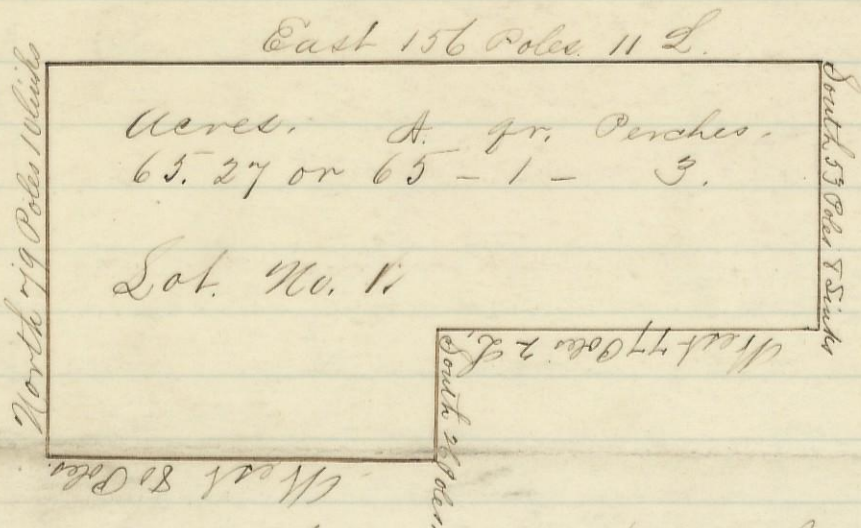 East 156 Poles. 11 L.
North 79 Poles 10 links
South 53 Poles 8 Links
Acres. A. qr. Perches.
65.27 or 65 - 1 - 3.
Lot. No. 1.
West 77 Poles 2 L,
South 26 Poles,
West 80 Poles.